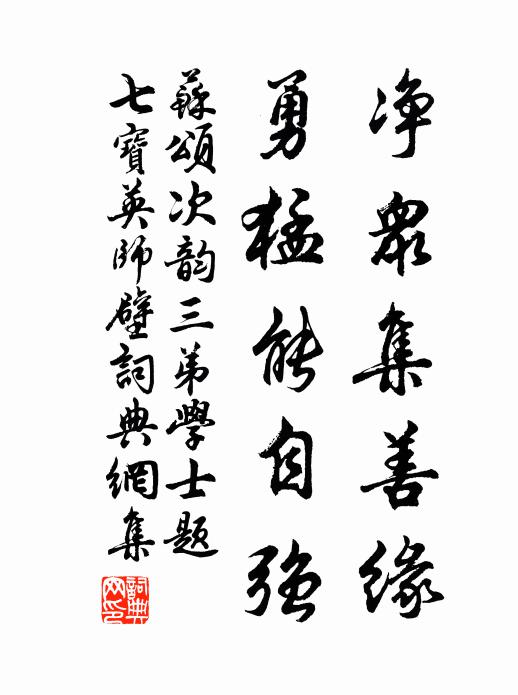 净衆集善緣
勇猛能自强
蘇頌次韵三弟學士題
七寶英師壁詞典網集
詞典網印